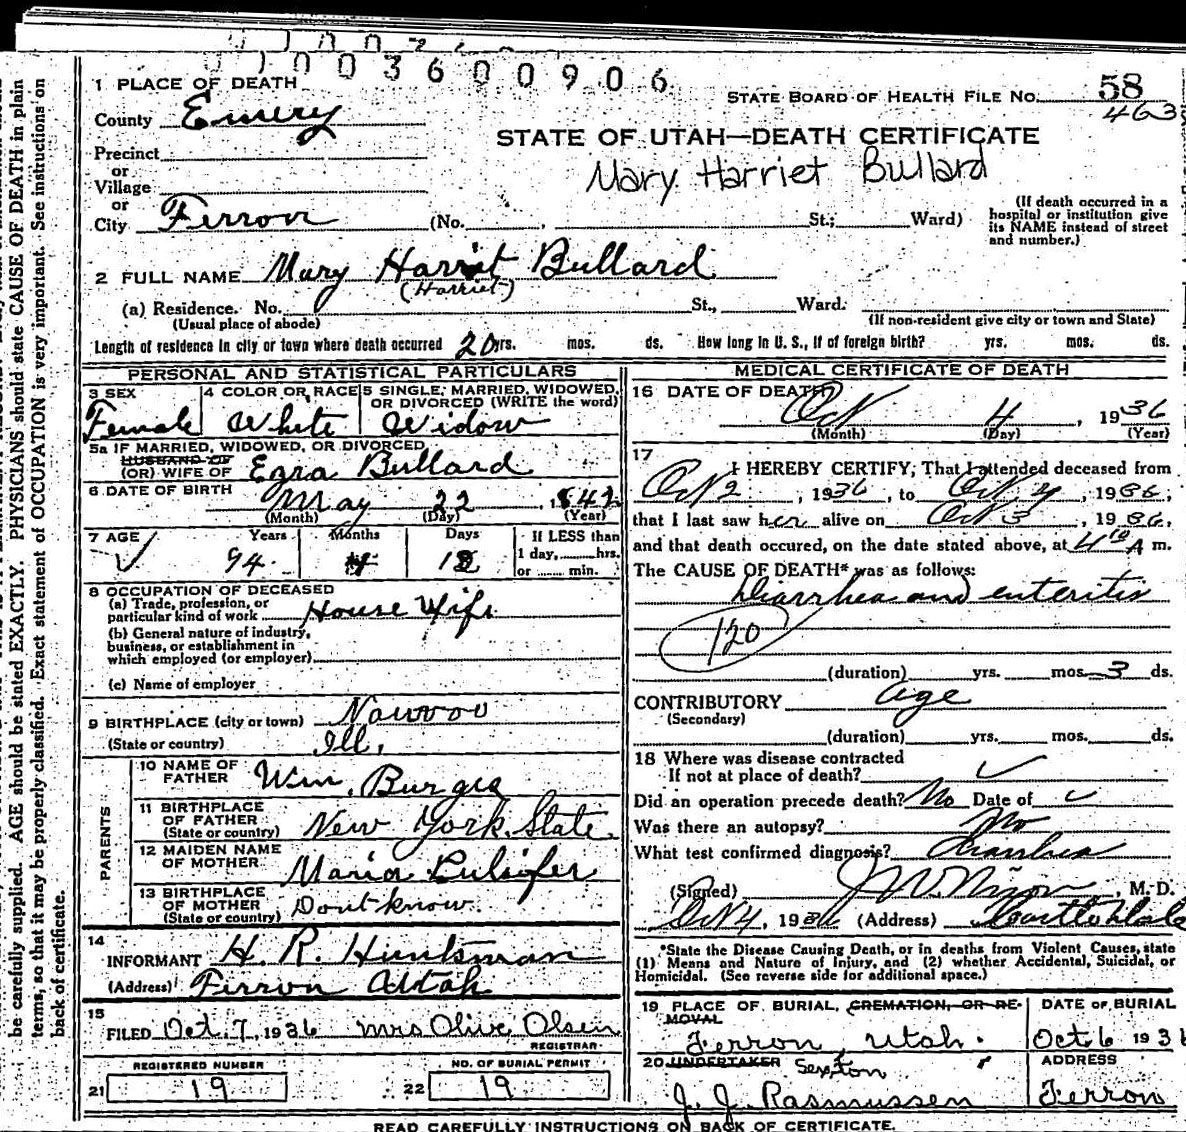 003600906
1 PLACE OF DEATH
STATE BOARD OF HEALTH FILE NO. 58
463
County Emery
STATE OF UTAH—DEATH CERTIFICATE
Precinct
or
Mary Harriet Bullard
Village
or
City Ferron (No. St.; Ward)
(If death occurred in a
hospital or institution give
its NAME instead of street
and number.)
2 FULL NAME Mary Harriet Bullard
(Harriet)
(a) Residence. No. St., Ward.
(Usual place of abode) (If non-resident give city or town and State)
Length of residence in city or town where death occurred 20 yrs. mos. ds. How long in U. S., if of foreign birth? yrs. mos. ds.
PERSONAL AND STATISTICAL PARTICULARS
3 SEX 4 COLOR OR RACE 5 SINGLE, MARRIED, WIDOWED,
OR DIVORCED (WRITE the word)
Female White Widow
5a IF MARRIED, WIDOWED, OR DIVORCED
HUSBAND OF
(OR) WIFE OF Ezra Bullard
6 DATE OF BIRTH May 22, 1842
(Month) (Day) (Year)
7 AGE Years Months Days If LESS than
1 day, hrs.
94 4 12 or min.
8 OCCUPATION OF DECEASED
(a) Trade, profession, or
particular kind of work House Wife
(b) General nature of industry,
business, or establishment in
which employed (or employer)
(c) Name of employer
9 BIRTHPLACE (city or town) Nauvoo
(State or country) Ill.
PARENTS
10 NAME OF
FATHER Wm. Burges
11 BIRTHPLACE
OF FATHER
(State or country) New York State
12 MAIDEN NAME
OF MOTHER Maria Pulsifer
13 BIRTHPLACE
OF MOTHER
(State or country) Dont know.
14
INFORMANT H. R. Huntsman
(Address) Ferron Utah
15
FILED Oct. 7, 1936 Mrs Olive Olsen
REGISTRAR
REGISTERED NUMBER NO. OF BURIAL PERMIT
21 19 22 19
MEDICAL CERTIFICATE OF DEATH
16 DATE OF DEATH Oct 4, 1936
(Month) (Day) (Year)
17
I HEREBY CERTIFY, That I attended deceased from
Oct 2, 1936, to Oct, 4, 1936,
that I last saw her alive on Oct 3, 1936,
and that death occured, on the date stated above, at 4 10 A m.
The CAUSE OF DEATH* was as follows:
Diarrhea and enteritis
120
(duration) yrs. mos. 3 ds.
CONTRIBUTORY age
(Secondary)
(duration) yrs. mos. ds.
18 Where was disease contracted
If not at place of death?
Did an operation precede death? No Date of
Was there an autopsy? No
What test confirmed diagnosis? Diarrhea
(Signed) J. W. Nixon, M. D.
Oct 4, 1936 (Address) Castle Dale
*State the Disease Causing Death, or in deaths from Violent Causes, state
(1) Means and Nature of Injury, and (2) whether Accidental, Suicidal, or
Homicidal. (See reverse side for additional space.)
19 PLACE OF BURIAL, CREMATION, OR RE-
MOVAL
DATE OF BURIAL
Ferron, Utah. Oct 6 193
20 UNDERTAKER Sexton ADDRESS
J. J. Rasmussen Ferron
READ CAREFULLY INSTRUCTIONS ON BACK OF CERTIFICATE.
be carefully supplied. AGE should be stated EXACTLY. PHYSICIANS should state CAUSE OF DEATH in plain
terms, so that it may be properly classified. Exact statement of OCCUPATION is very important. See instructions on
back of certificate.